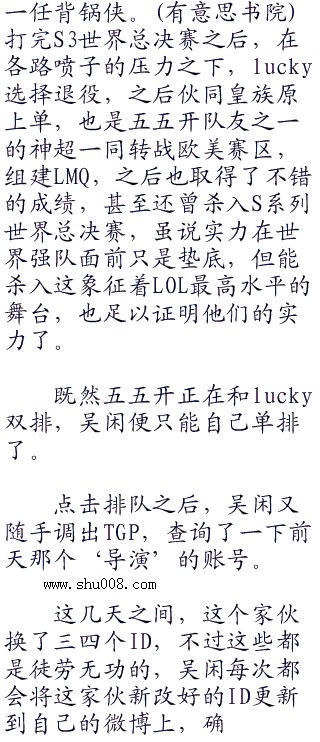 一任背锅侠。(有意思书院)
打完S3世界总决赛之后，在
各路喷子的压力之下，lucky
选择退役，之后伙同皇族原
上单，也是五五开队友之一
的神超一同转战欧美赛区，
组建LMQ，之后也取得了不错
的成绩，甚至还曾杀入S系列
世界总决赛，虽说实力在世
界强队面前只是垫底，但能
杀入这象征着LOL最高水平的
舞台，也足以证明他们的实
力了。
既然五五开正在和lucky
双排，吴闲便只能自己单排
了。
点击排队之后，吴闲又
随手调出TGP，查询了一下前
天那个‘导演’的账号。
www.shu008.com
这几天之间，这个家伙
换了三四个ID，不过这些都
是徒劳无功的，吴闲每次都
会将这家伙新改好的ID更新
到自己的微博上，确